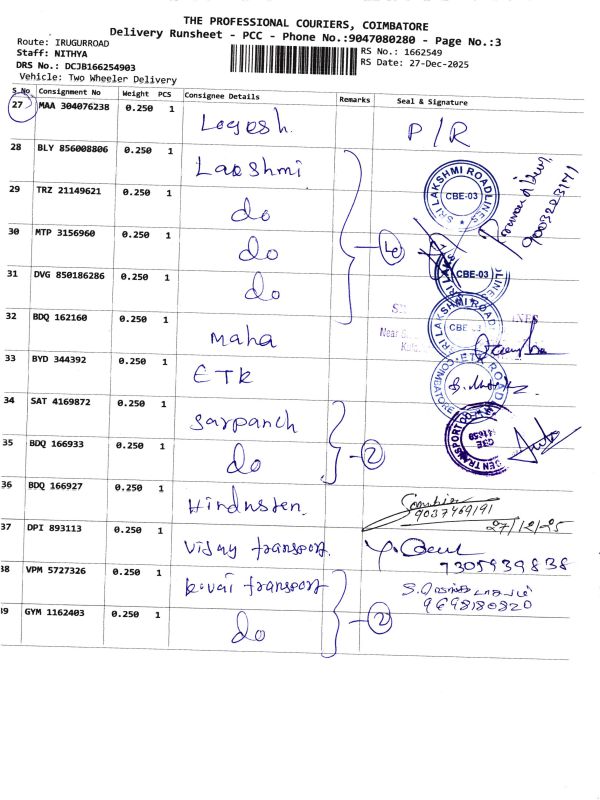 THE PROFESSIONAL COURIERS, COIMBATORE
Delivery Runsheet - PCC - Phone No.:9047080280 - Page No.:3
Route: IRUGURROAD
Staff: NITHYA
DRS No.: DCJB166254903
Vehicle: Two Wheeler Delivery
RS No.: 1662549
RS Date: 27-Dec-2025
S No Consignment No Weight PCS Consignee Details Remarks Seal & Signature
27 MAA 304076238 0.250 1 Logesh. P/R
28 BLY 856008806 0.250 1 Lakshmi
SRI LAKSHMI ROADLINES
CBE-03
9003203141
29 TRZ 21149621 0.250 1 do
30 MTP 3156960 0.250 1 do
31 DVG 850186286 0.250 1 do
CBE-03
32 BDQ 162160 0.250 1 maha
SRI LAKSHMI ROAD
CBE
Near
33 BYD 344392 0.250 1 ETK
34 SAT 4169872 0.250 1 sarpanch
35 BDQ 166933 0.250 1 do 2
36 BDQ 166927 0.250 1 Hindusten.
9037469191
27/12/25
37 DPI 893113 0.250 1 Vijay transport.
7305939838
38 VPM 5727326 0.250 1 kovai transport
9698180820
39 GYM 1162403 0.250 1 do 2